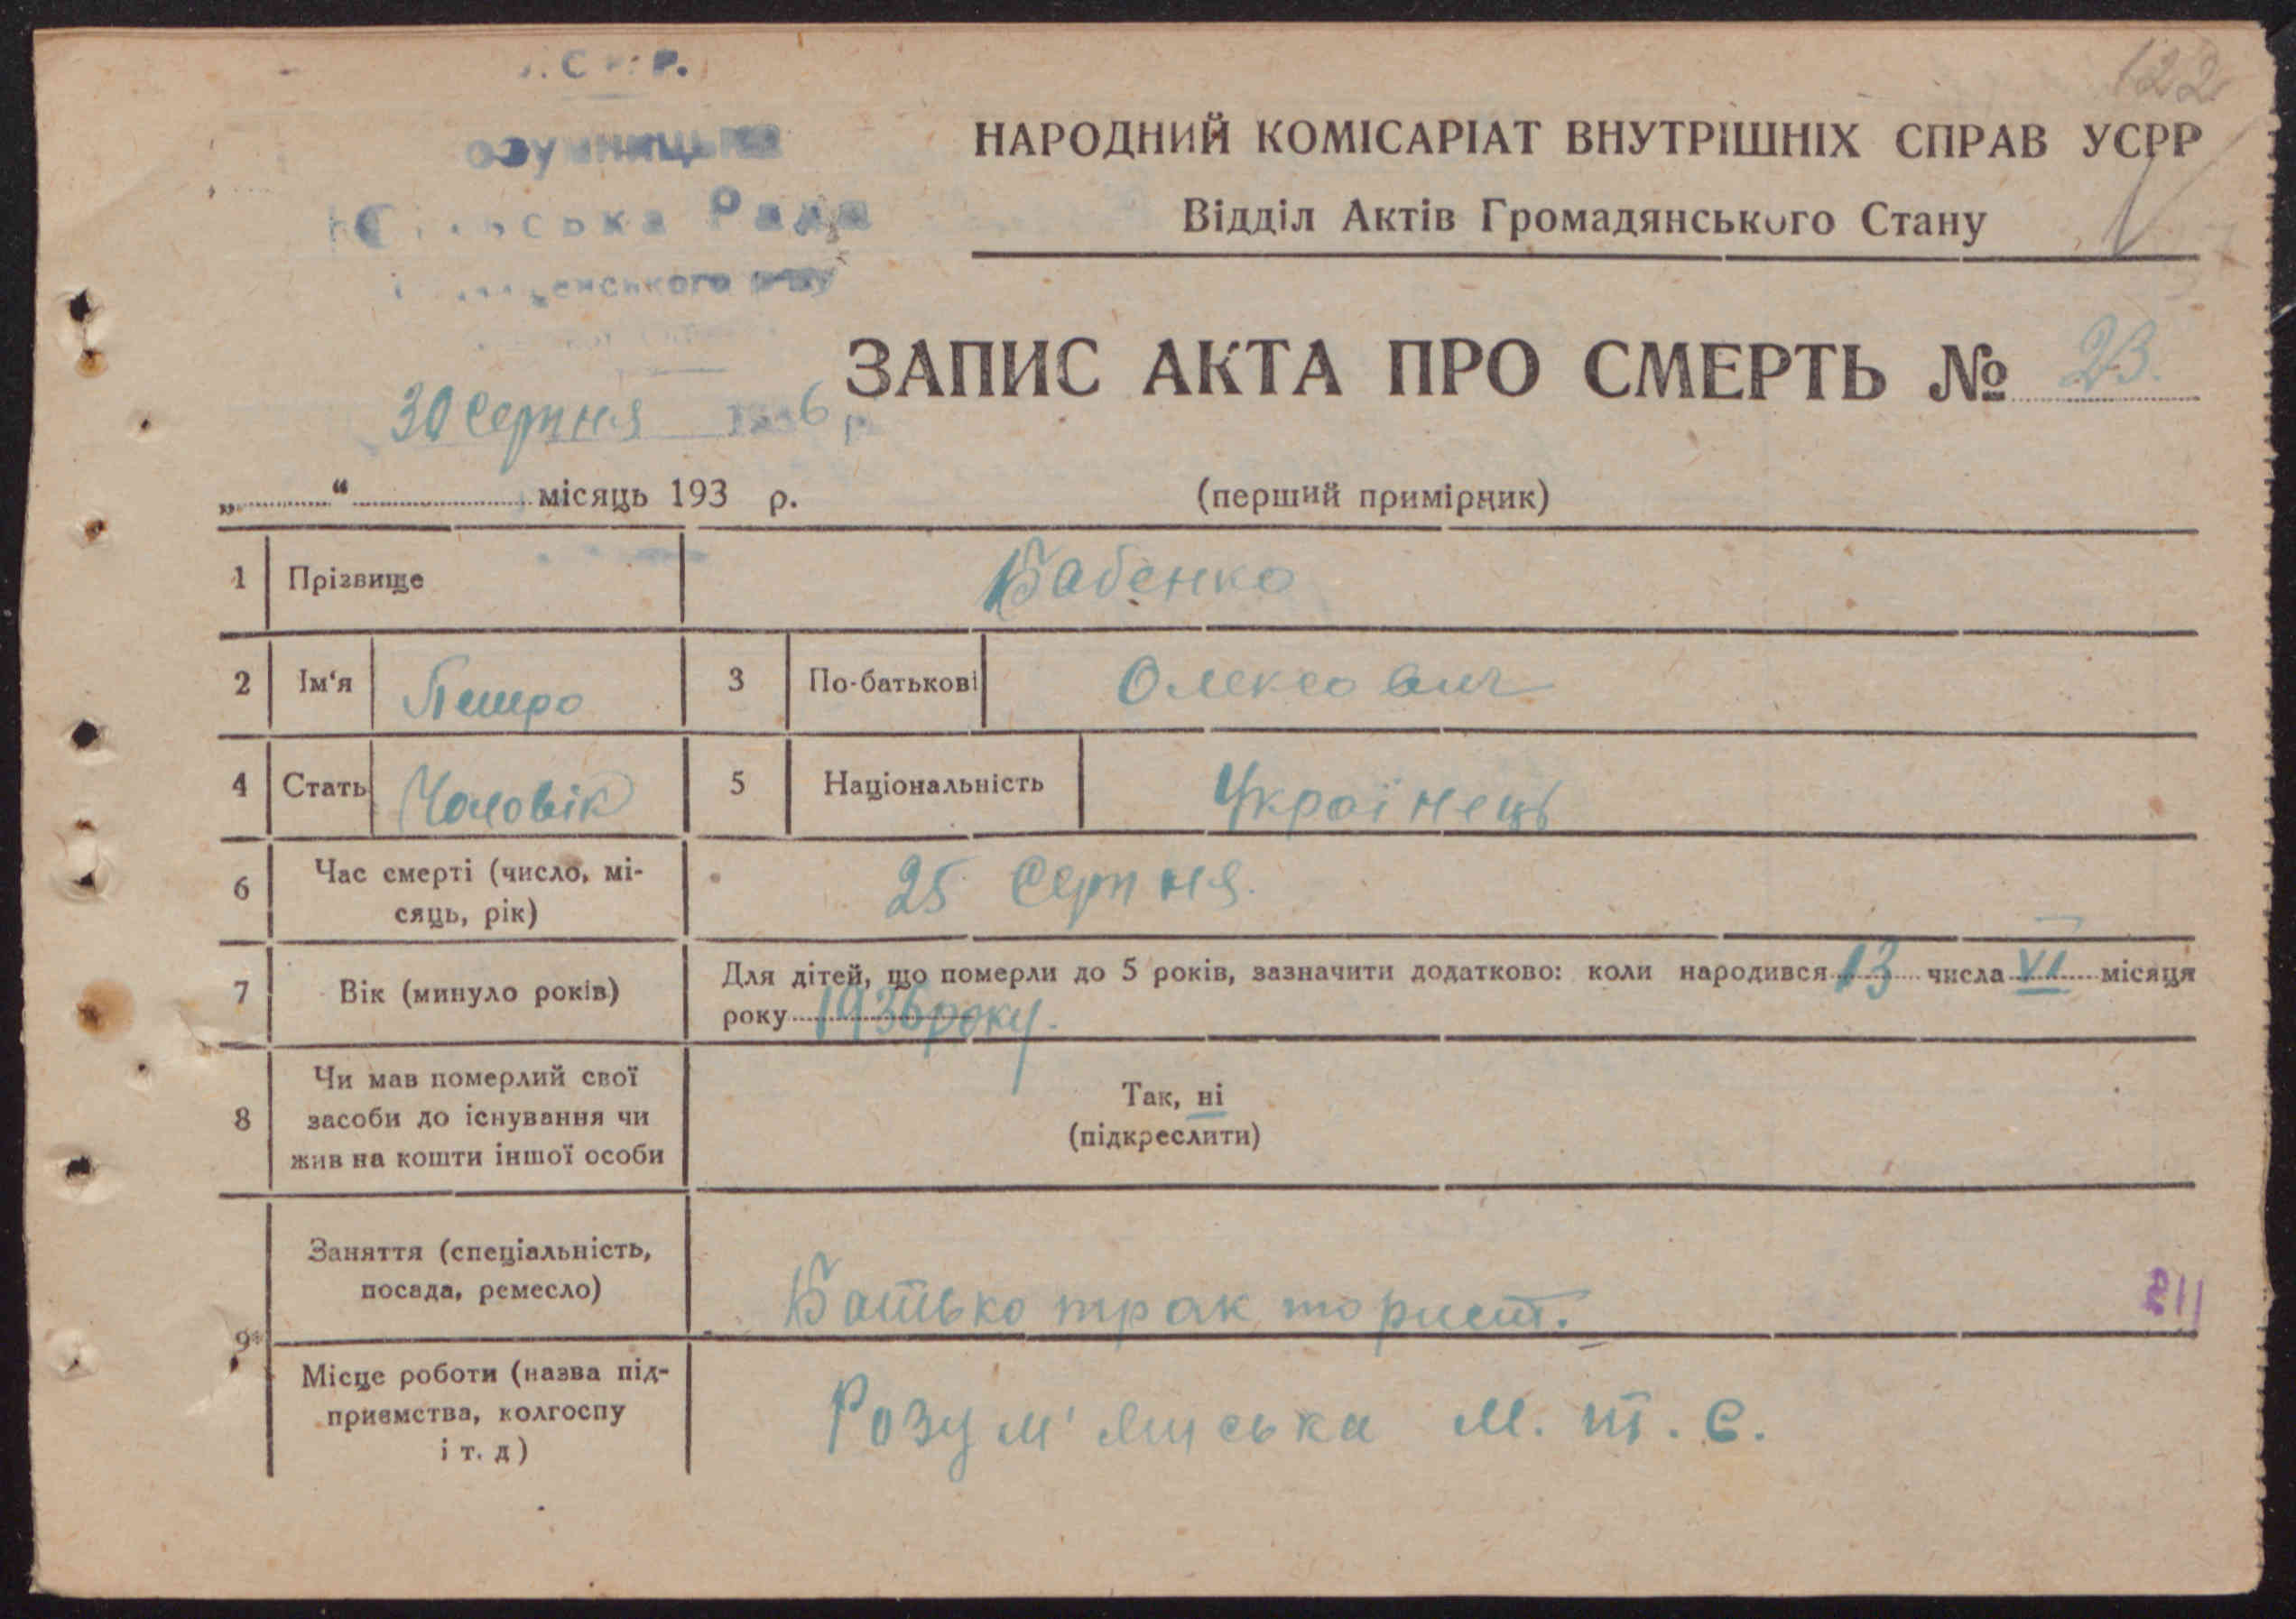 122
НАРОДНИЙ КОМІСАРІАТ ВНУТРІШНІХ СПРАВ УСРР
Відділ Актів Громадянського Стану
Рада
ЗАПИС АКТА ПРО СМЕРТЬ № 23.
30 Серпня 1936 р.
„ “ місяць 193 р.
(перший примірник)
1 Прізвище Бабенко
2 Ім‘я Петро 3 По-батькові Олексович
4 Стать Чоловік 5 Національність Українець
6 Час смерті (число, мі-
сяць, рік) 25 Серпня.
7 Вік (минуло років) Для дітей, що померли до 5 років, зазначити додатково: коли народився 13 числа VI місяця
року 1936 року.
8 Чи мав померлий свої
засоби до існування чи
жив на кошти іншої особи
Так, ні
(підкреслити)
9* Заняття (спеціальність,
посада, ремесло) Батько тракторист.
Місце роботи (назва під-
приємства, колгоспу
і т. д) м. т. с.